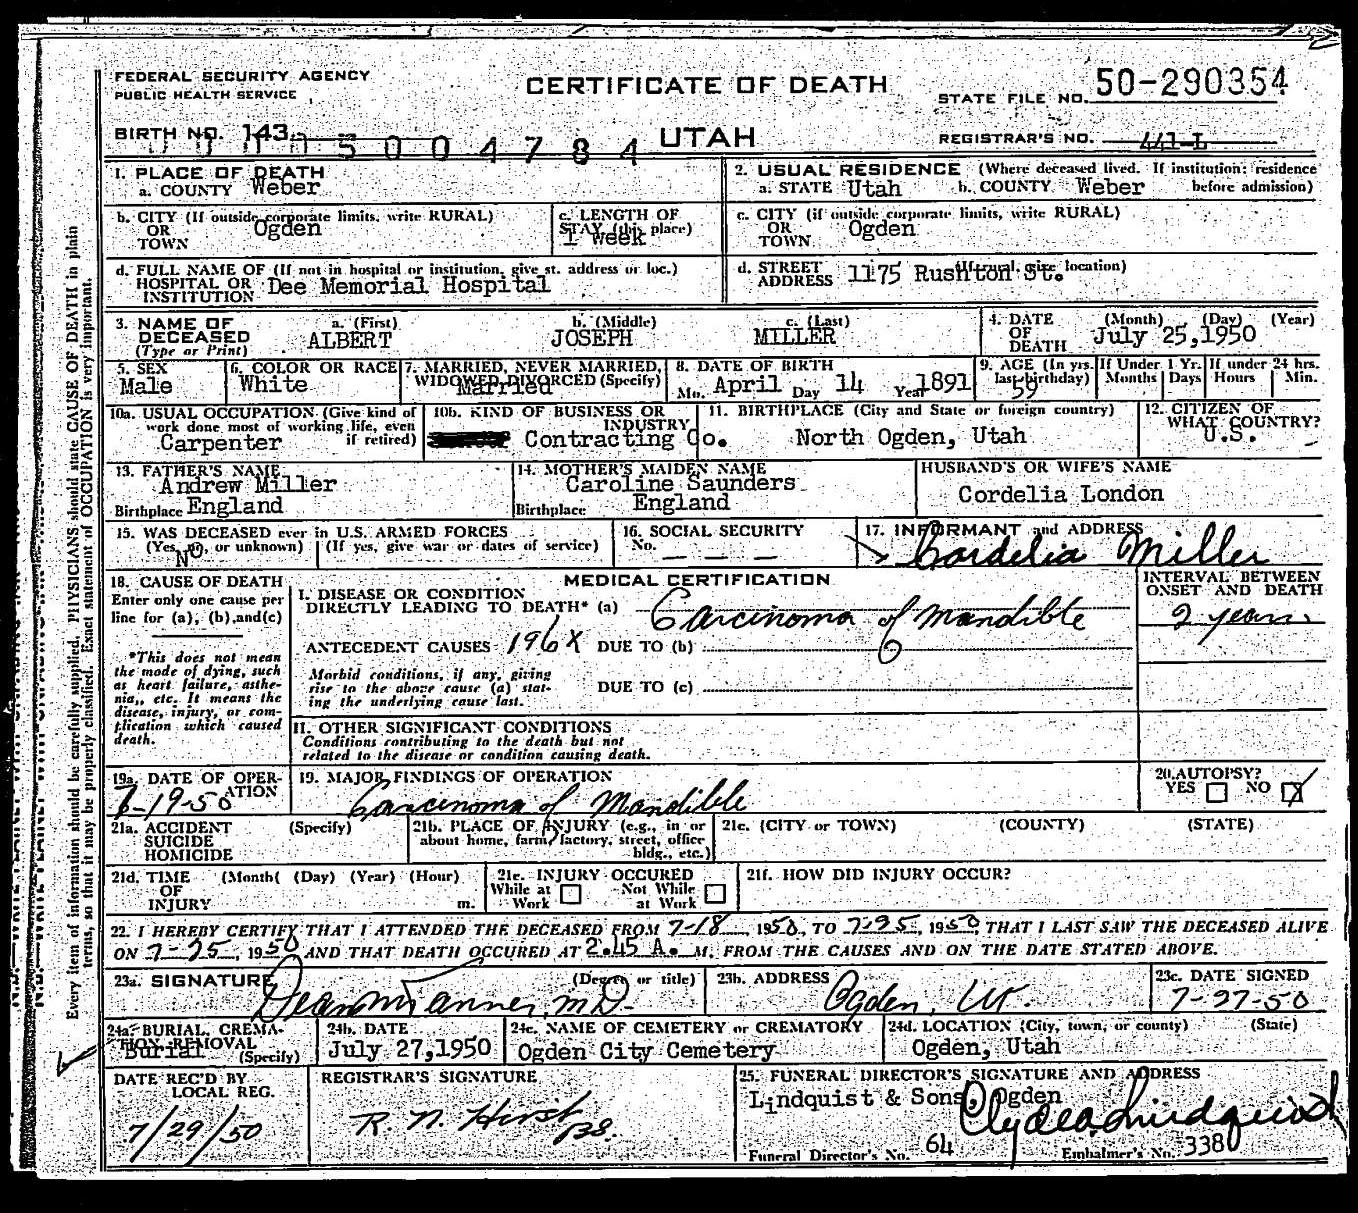 FEDERAL SECURITY AGENCY
PUBLIC HEALTH SERVICE
CERTIFICATE OF DEATH
STATE FILE NO. 50-290354
BIRTH NO. 143
0005004784
UTAH
REGISTRAR'S NO. 441-L
1. PLACE OF DEATH
a. COUNTY Weber
2. USUAL RESIDENCE (Where deceased lived. If institution: residence before admission)
a. STATE Utah b. COUNTY Weber
b. CITY (If outside corporate limits, write RURAL)
OR TOWN Ogden
c. LENGTH OF STAY (this place)
1 week
c. CITY (if outside corporate limits, write RURAL)
OR TOWN Ogden
d. FULL NAME OF (If not in hospital or institution, give st. address or loc.)
HOSPITAL OR INSTITUTION Dee Memorial Hospital
d. STREET ADDRESS (If rural, give location)
1175 Rushton St.
3. NAME OF DECEASED (Type or Print)
a. (First) b. (Middle) c. (Last)
ALBERT JOSEPH MILLER
4. DATE OF DEATH (Month) (Day) (Year)
July 25,1950
5. SEX
Male
6. COLOR OR RACE
White
7. MARRIED, NEVER MARRIED, WIDOWED, DIVORCED (Specify)
Married
8. DATE OF BIRTH
Mo. April Day 14 Year 1891
9. AGE (In yrs. last birthday) If Under 1 Yr. If under 24 hrs.
59 Months Days Hours Min.
10a. USUAL OCCUPATION (Give kind of work done most of working life, even if retired)
Carpenter
10b. KIND OF BUSINESS OR INDUSTRY
Contracting Co.
11. BIRTHPLACE (City and State or foreign country)
North Ogden, Utah
12. CITIZEN OF WHAT COUNTRY?
U.S.
13. FATHER'S NAME
Andrew Miller
Birthplace England
14. MOTHER'S MAIDEN NAME
Caroline Saunders
Birthplace England
HUSBAND'S OR WIFE'S NAME
Cordelia London
15. WAS DECEASED ever in U.S. ARMED FORCES
(Yes, no, or unknown) (If yes, give war or dates of service)
No
16. SOCIAL SECURITY
No. — — —
17. INFORMANT and ADDRESS
Cordelia Miller
18. CAUSE OF DEATH
Enter only one cause per line for (a), (b), and (c)
*This does not mean the mode of dying, such as heart failure, asthenia, etc. It means the disease, injury, or complication which caused death.
MEDICAL CERTIFICATION
INTERVAL BETWEEN ONSET AND DEATH
I. DISEASE OR CONDITION
DIRECTLY LEADING TO DEATH* (a) Carcinoma of Mandible
2 years.
ANTECEDENT CAUSES 196X DUE TO (b)
Morbid conditions, if any, giving rise to the above cause (a) stating the underlying cause last.
DUE TO (c)
II. OTHER SIGNIFICANT CONDITIONS
Conditions contributing to the death but not
related to the disease or condition causing death.
19a. DATE OF OPERATION
19. MAJOR FINDINGS OF OPERATION
Carcinoma of Mandible
20. AUTOPSY?
YES NO X
21a. ACCIDENT SUICIDE HOMICIDE (Specify)
21b. PLACE OF INJURY (e.g., in or about home, farm, factory, street, office bldg., etc.)
21c. (CITY or TOWN) (COUNTY) (STATE)
21d. TIME OF INJURY (Month( (Day) (Year) (Hour) m.
21e. INJURY OCCURED
While at Work Not While at Work
21f. HOW DID INJURY OCCUR?
22. I HEREBY CERTIFY THAT I ATTENDED THE DECEASED FROM 7-18, 1950, TO 7-25, 1950, THAT I LAST SAW THE DECEASED ALIVE
ON 7-25, 1950 AND THAT DEATH OCCURED AT 2.45 A. M. FROM THE CAUSES AND ON THE DATE STATED ABOVE.
23a. SIGNATURE (Degree or title)
Dean M Tanner, M.D.
23b. ADDRESS
Ogden, Ut.
23c. DATE SIGNED
7-27-50
24a. BURIAL, CREMATION, REMOVAL (Specify)
Burial
24b. DATE
July 27,1950
24c. NAME OF CEMETERY or CREMATORY
Ogden City Cemetery
24d. LOCATION (City, town, or county) (State)
Ogden, Utah
DATE REC'D BY LOCAL REG.
7/29/50
REGISTRAR'S SIGNATURE
R. N. Hirst
25. FUNERAL DIRECTOR'S SIGNATURE AND ADDRESS
Lindquist & Sons, Ogden
Clyde A. Lindquist
Funeral Director's No. 64 Embalmer's No. 338
Every item of information should be carefully supplied. PHYSICIANS should state CAUSE OF DEATH in plain
terms, so that it may be properly classified. Exact statement of OCCUPATION is very important.